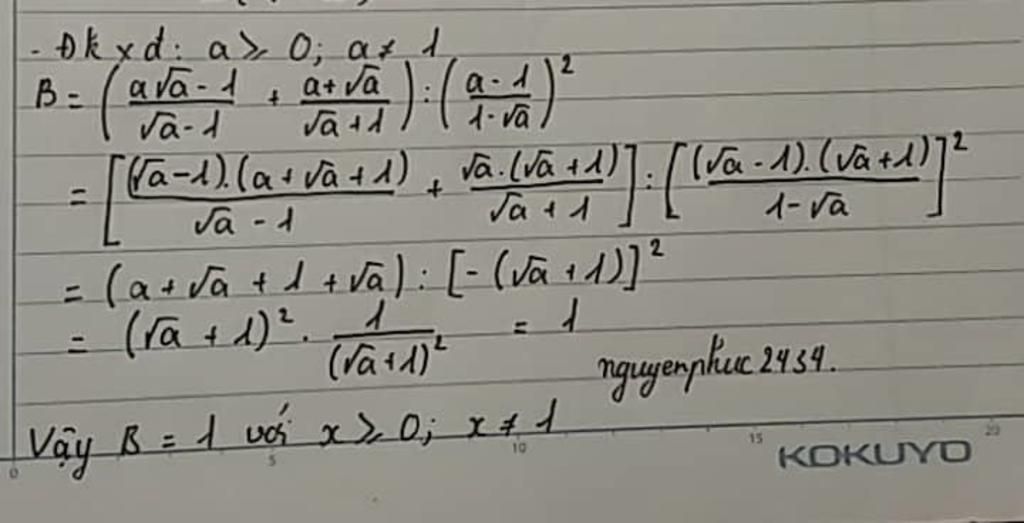 - Đkxd: a ≥ 0; a ≠ 1
B = ((a√a - 1)/(√a - 1) + (a + √a)/(√a + 1)) : ((a - 1)/(1 - √a))²
= [((√a - 1).(a + √a + 1))/(√a - 1) + (√a.(√a + 1))/(√a + 1)] : [((√a - 1).(√a + 1))/(1 - √a)]²
= (a + √a + 1 + √a) : [-(√a + 1)]²
= (√a + 1)² . 1/(√a + 1)² = 1
nguyenphuc2434.
Vậy B = 1 với x ≥ 0; x ≠ 1
0 5 10 15 20
KOKUYO